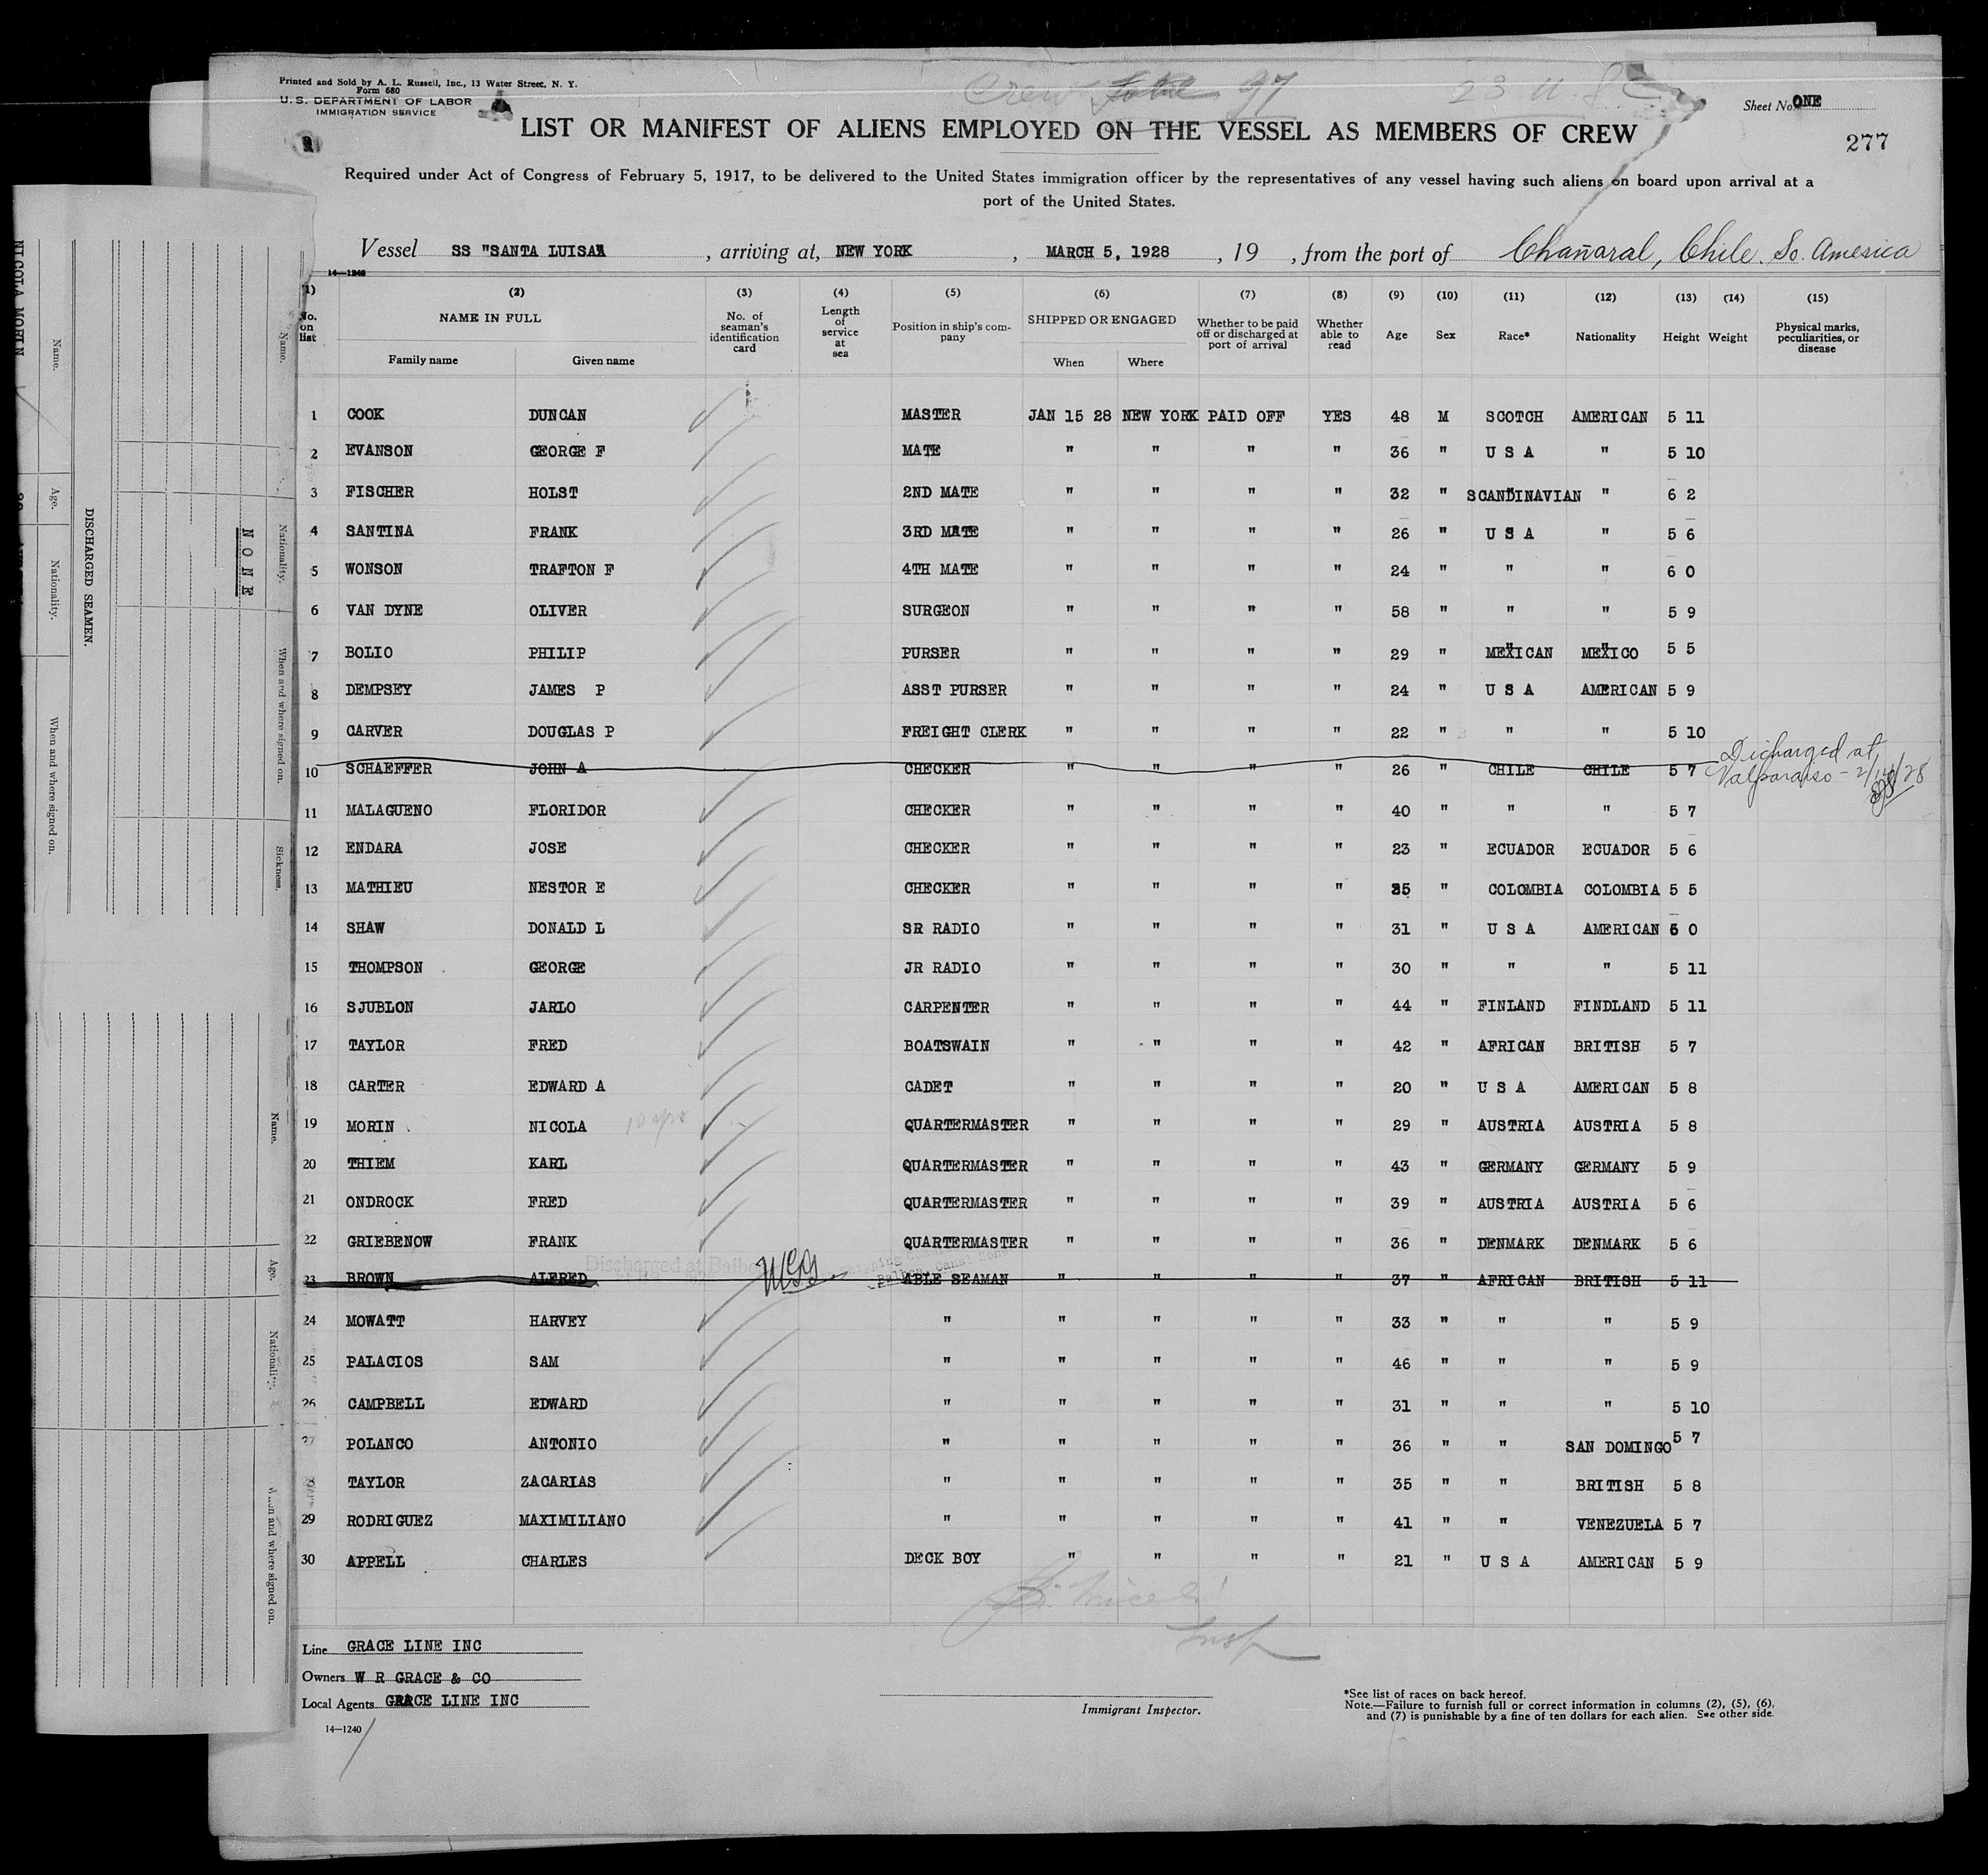 Printed and Sold by A. L. Russell, Inc., 13 Water Street, N. Y.
Form 680
U. S. DEPARTMENT OF LABOR
IMMIGRATION SERVICE
Crew 97
Sheet No. ONE
LIST OR MANIFEST OF ALIENS EMPLOYED ON THE VESSEL AS MEMBERS OF CREW
277
Required under Act of Congress of February 5, 1917, to be delivered to the United States immigration officer by the representatives of any vessel having such aliens on board upon arrival at a
port of the United States.
Vessel SS "SANTA LUISA" , arriving at, NEW YORK , MARCH 5, 1928 , 19 , from the port of Chañaral, Chile. So. America
14—1240
(1) (2) (3) (4) (5) (6) (7) (8) (9) (10) (11) (12) (13) (14) (15)
No. on list NAME IN FULL No. of seaman's identification card Length of service at sea Position in ship's company SHIPPED OR ENGAGED Whether to be paid off or discharged at port of arrival Whether able to read Age Sex Race* Nationality Height Weight Physical marks, peculiarities, or disease
Family name Given name When Where
1 COOK DUNCAN MASTER JAN 15 28 NEW YORK PAID OFF YES 48 M SCOTCH AMERICAN 5 11
2 EVANSON GEORGE F MATE " " " " 36 " U S A " 5 10
3 FISCHER HOLST 2ND MATE " " " " 32 " SCANDINAVIAN " 6 2
4 SANTINA FRANK 3RD MATE " " " " 26 " U S A " 5 6
5 WONSON TRAFTON F 4TH MATE " " " " 24 " " " 6 0
6 VAN DYNE OLIVER SURGEON " " " " 58 " " " 5 9
7 BOLIO PHILIP PURSER " " " " 29 " MEXICAN MEXICO 5 5
8 DEMPSEY JAMES P ASST PURSER " " " " 24 " U S A AMERICAN 5 9
9 CARVER DOUGLAS P FREIGHT CLERK " " " " 22 " " " 5 10
10 SCHAEFFER JOHN A CHECKER " " " " 26 " CHILE CHILE 5 7 Discharged at Valparaiso - 2/14/28
11 MALAGUENO FLORIDOR CHECKER " " " " 40 " " " 5 7
12 ENDARA JOSE CHECKER " " " " 23 " ECUADOR ECUADOR 5 6
13 MATHIEU NESTOR E CHECKER " " " " 35 " COLOMBIA COLOMBIA 5 5
14 SHAW DONALD L SR RADIO " " " " 31 " U S A AMERICAN 6 0
15 THOMPSON GEORGE JR RADIO " " " " 30 " " " 5 11
16 SJUBLON JARLO CARPENTER " " " " 44 " FINLAND FINDLAND 5 11
17 TAYLOR FRED BOATSWAIN " " " " 42 " AFRICAN BRITISH 5 7
18 CARTER EDWARD A CADET " " " " 20 " U S A AMERICAN 5 8
19 MORIN NICOLA 10 yrs QUARTERMASTER " " " " 29 " AUSTRIA AUSTRIA 5 8
20 THIEM KARL QUARTERMASTER " " " " 43 " GERMANY GERMANY 5 9
21 ONDROCK FRED QUARTERMASTER " " " " 39 " AUSTRIA AUSTRIA 5 6
22 GRIEBENOW FRANK QUARTERMASTER " " " " 36 " DENMARK DENMARK 5 6
Discharged at Balboa
23 BROWN ALFRED ABLE SEAMAN " " " " 37 " AFRICAN BRITISH 5 11
24 MOWATT HARVEY " " " " " 33 " " " 5 9
25 PALACIOS SAM " " " " " 46 " " " 5 9
26 CAMPBELL EDWARD " " " " " 31 " " " 5 10
27 POLANCO ANTONIO " " " " " 36 " " SAN DOMINGO 5 7
28 TAYLOR ZACARIAS " " " " " 35 " " BRITISH 5 8
29 RODRIGUEZ MAXIMILIANO " " " " " 41 " " VENEZUELA 5 7
30 APPELL CHARLES DECK BOY " " " " 21 " U S A AMERICAN 5 9
Insp
Line GRACE LINE INC
Owners W R GRACE & CO
Local Agents GRACE LINE INC
14—1240
Immigrant Inspector.
*See list of races on back hereof.
Note.—Failure to furnish full or correct information in columns (2), (5), (6),
and (7) is punishable by a fine of ten dollars for each alien. See other side.
NICOLA MORIN
Name.
Age.
Nationality.
When and where signed on.
DISCHARGED SEAMEN.
NONE
Name.
Nationality.
When and where signed on.
Sickness.
Name.
Age.
Nationality.
When and where signed on.